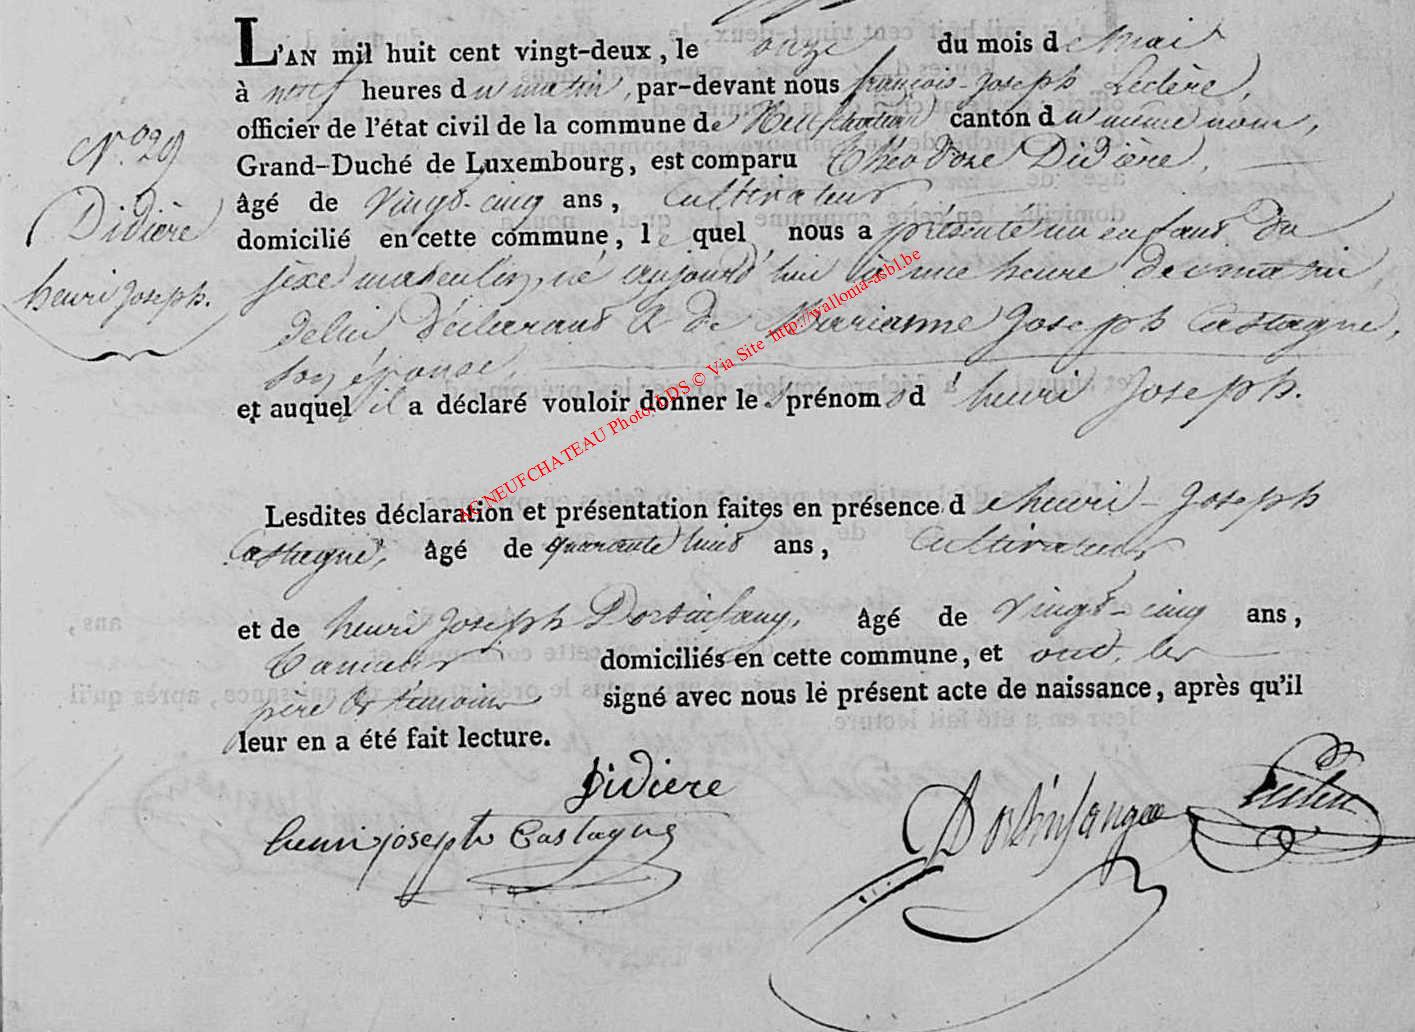 L'AN mil huit cent vingt-deux, le onze du mois de Mai
à neuf heures du matin, par-devant nous françois-Joseph Leclère,
officier de l'état civil de la commune de Neufchateau canton du même nom,
Grand-Duché de Luxembourg, est comparu Théodore Didière,
âgé de vingt-cinq ans, Cultivateur
domicilié en cette commune, lequel nous a présenté un enfant du
sexe masculin, né aujourd'hui à une heure du matin,
de lui déclarant & de Marianne Joseph Castagne,
son épouse,
et auquel il a déclaré vouloir donner les prénoms d'henri Joseph.
N.º 29
Didière
henri Joseph.
AC NEUFCHATEAU Photo LDS © Via Site http://wallonia-asbl.be
Lesdites déclaration et présentation faites en présence de henri-Joseph
Castagne, âgé de quarante huit ans, Cultivateur
et de henri Joseph âgé de vingt-cinq ans,
domiciliés en cette commune, et ont les
père & témoins signé avec nous le présent acte de naissance, après qu'il
leur en a été fait lecture.
Didiere
henri joseph Castagne